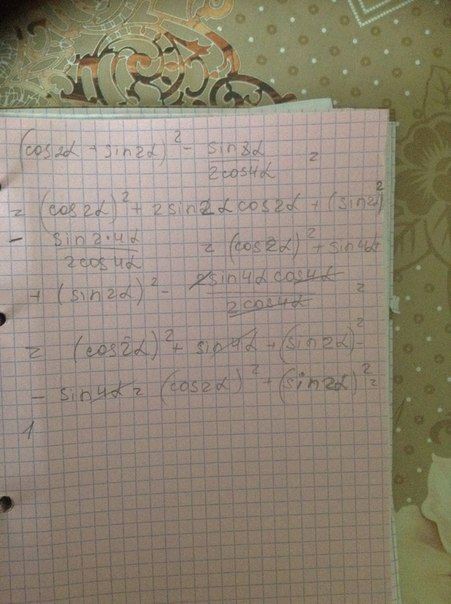 (cos2α + sin2α)² - sin8α / 2cos4α =
= (cos2α)² + 2sin2α cos2α + (sin2α)²
- sin2·4α / 2cos4α = (cos2α)² + sin4α
+ (sin2α)² - 2sin4α cos4α / 2cos4α =
= (cos2α)² + sin4α + (sin2α)² -
- sin4α = (cos2α)² + (sin2α)² =
1